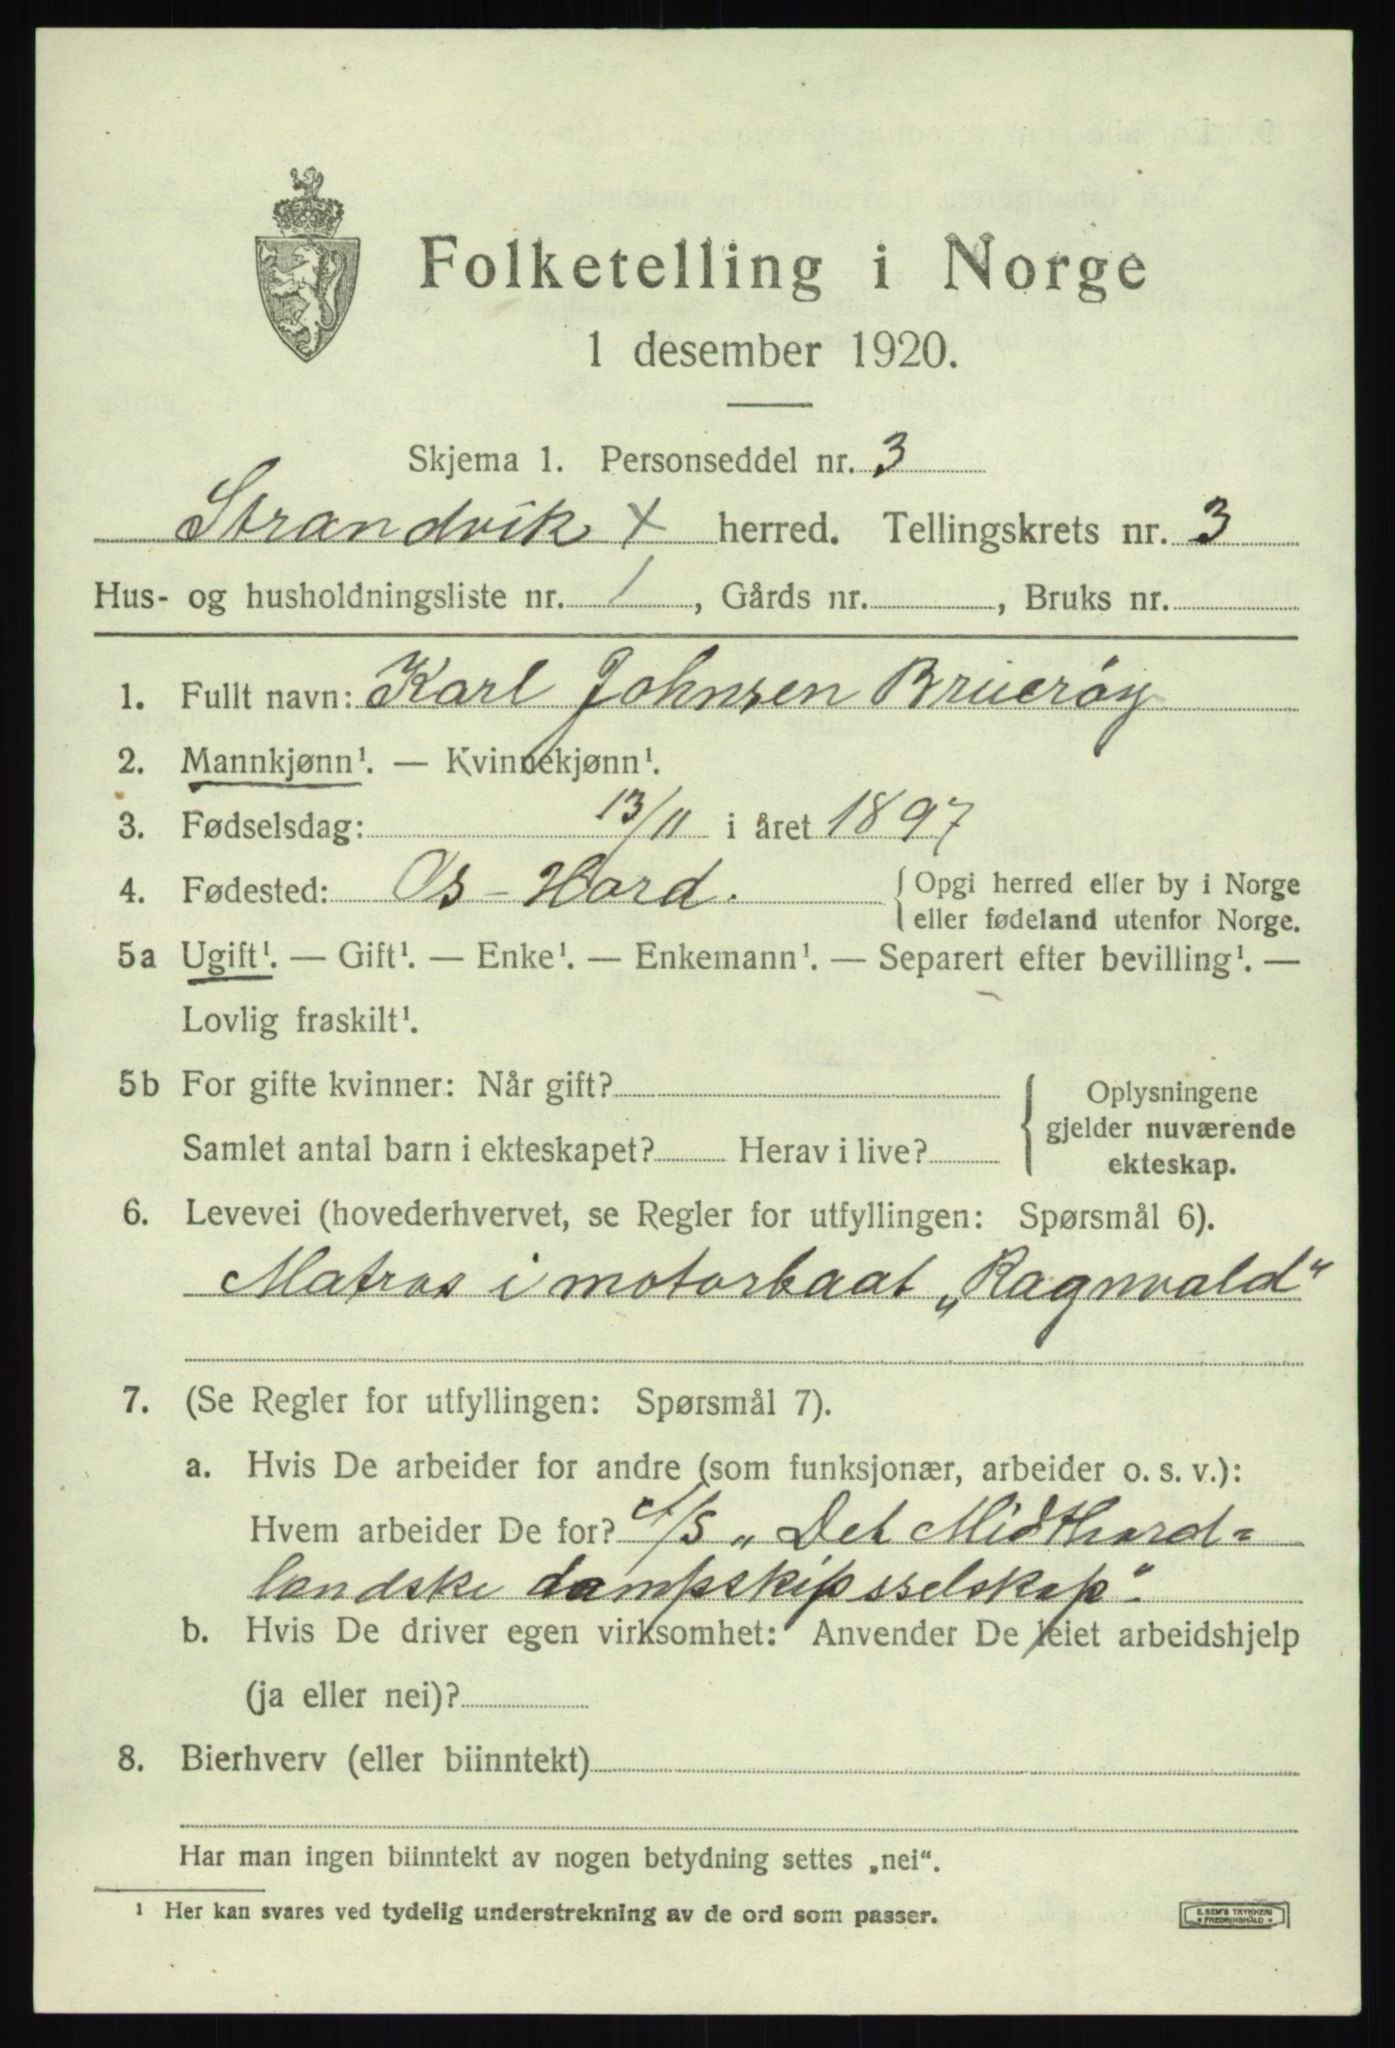 Folketelling i Norge
1 desember 1920.
Skjema 1. Personseddel nr. 3
Strandvik x herred. Tellingskrets nr. 3
Hus- og husholdningsliste nr. 1, Gårds nr. , Bruks nr.
1. Fullt navn: Karl Johnsen Bruerøy
2. Mannkjønn¹. — Kvinnekjønn¹.
3. Fødselsdag: 13/11 i året 1897
4. Fødested: Os - Hord. { Opgi herred eller by i Norge
eller fødeland utenfor Norge.
5a Ugift¹. — Gift¹. — Enke¹. — Enkemann¹. — Separert efter bevilling¹. —
Lovlig fraskilt¹.
5b For gifte kvinner: Når gift? { Oplysningene
gjelder nuværende
Samlet antal barn i ekteskapet? Herav i live? ekteskap.
6. Levevei (hovederhvervet, se Regler for utfyllingen: Spørsmål 6).
Matros i motorbaat „Ragnvald"
7. (Se Regler for utfyllingen: Spørsmål 7).
a. Hvis De arbeider for andre (som funksjonær, arbeider o. s. v.):
Hvem arbeider De for? A/S „Det Midthord=
landske dampskipsselskap".
b. Hvis De driver egen virksomhet: Anvender De leiet arbeidshjelp
(ja eller nei)?
8. Bierhverv (eller biinntekt)
Har man ingen biinntekt av nogen betydning settes „nei".
¹ Her kan svares ved tydelig understrekning av de ord som passer.
E. SEM'S TRYKKERI
FREDRIKSHALD